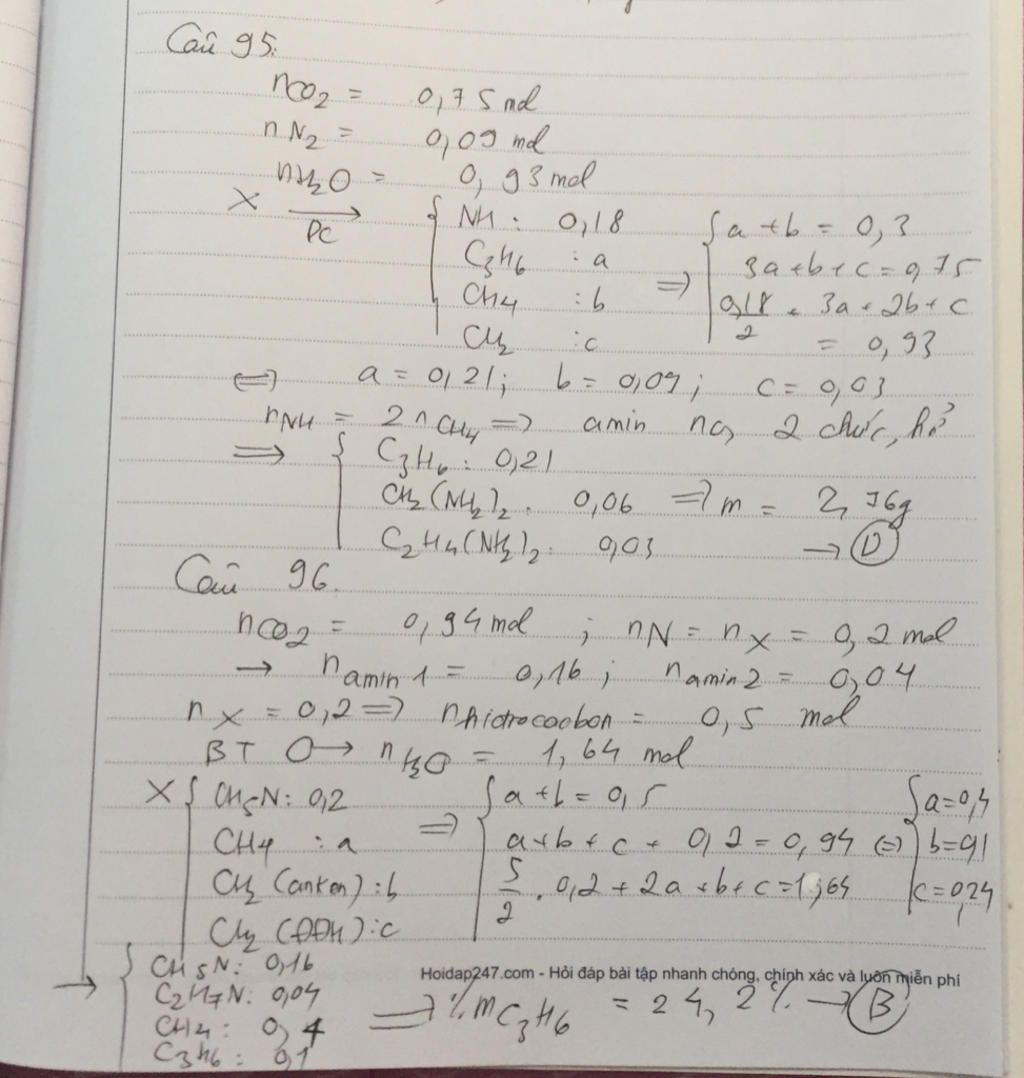 Câu 95.
nCO2 = 0,75 mol
nN2 = 0,09 mol
nH2O = 0,93 mol
X →(PC) { NH : 0,18
C3H6 : a
CH4 : b
CH2 : c
⇒ { a + b = 0,3
3a + b + c = 0,75
0,18/2 + 3a + 2b + c
= 0,93
⇔ a = 0,21; b = 0,09; c = 0,03
nNH = 2nCH4 ⇒ amin no, 2 chức, hở
⇒ { C3H6 : 0,21
CH2(NH2)2 : 0,06 ⇒ m = 2,76g
C2H4(NH2)2 : 0,03 → D
Câu 96.
nCO2 = 0,94 mol ; nN = nX = 0,2 mol
→ namin 1 = 0,16 ; namin 2 = 0,04
nX = 0,2 ⇒ nhidrocacbon = 0,5 mol
BT O → nH2O = 1,64 mol
X { CH5N : 0,2
CH4 : a
CH2 (anken) : b
CH2 (ĐĐH) : c
⇒ { a + b = 0,5
a + b + c + 0,2 = 0,94
5/2 . 0,2 + 2a + b + c = 1,64
⇔ { a = 0,4
b = 0,1
c = 0,24
→ { CH5N : 0,16
C2H7N : 0,04
CH4 : 0,4
C3H6 : 0,1
Hoidap247.com - Hỏi đáp bài tập nhanh chóng, chính xác và luôn miễn phí
⇒ %mC3H6 = 24,2% → B